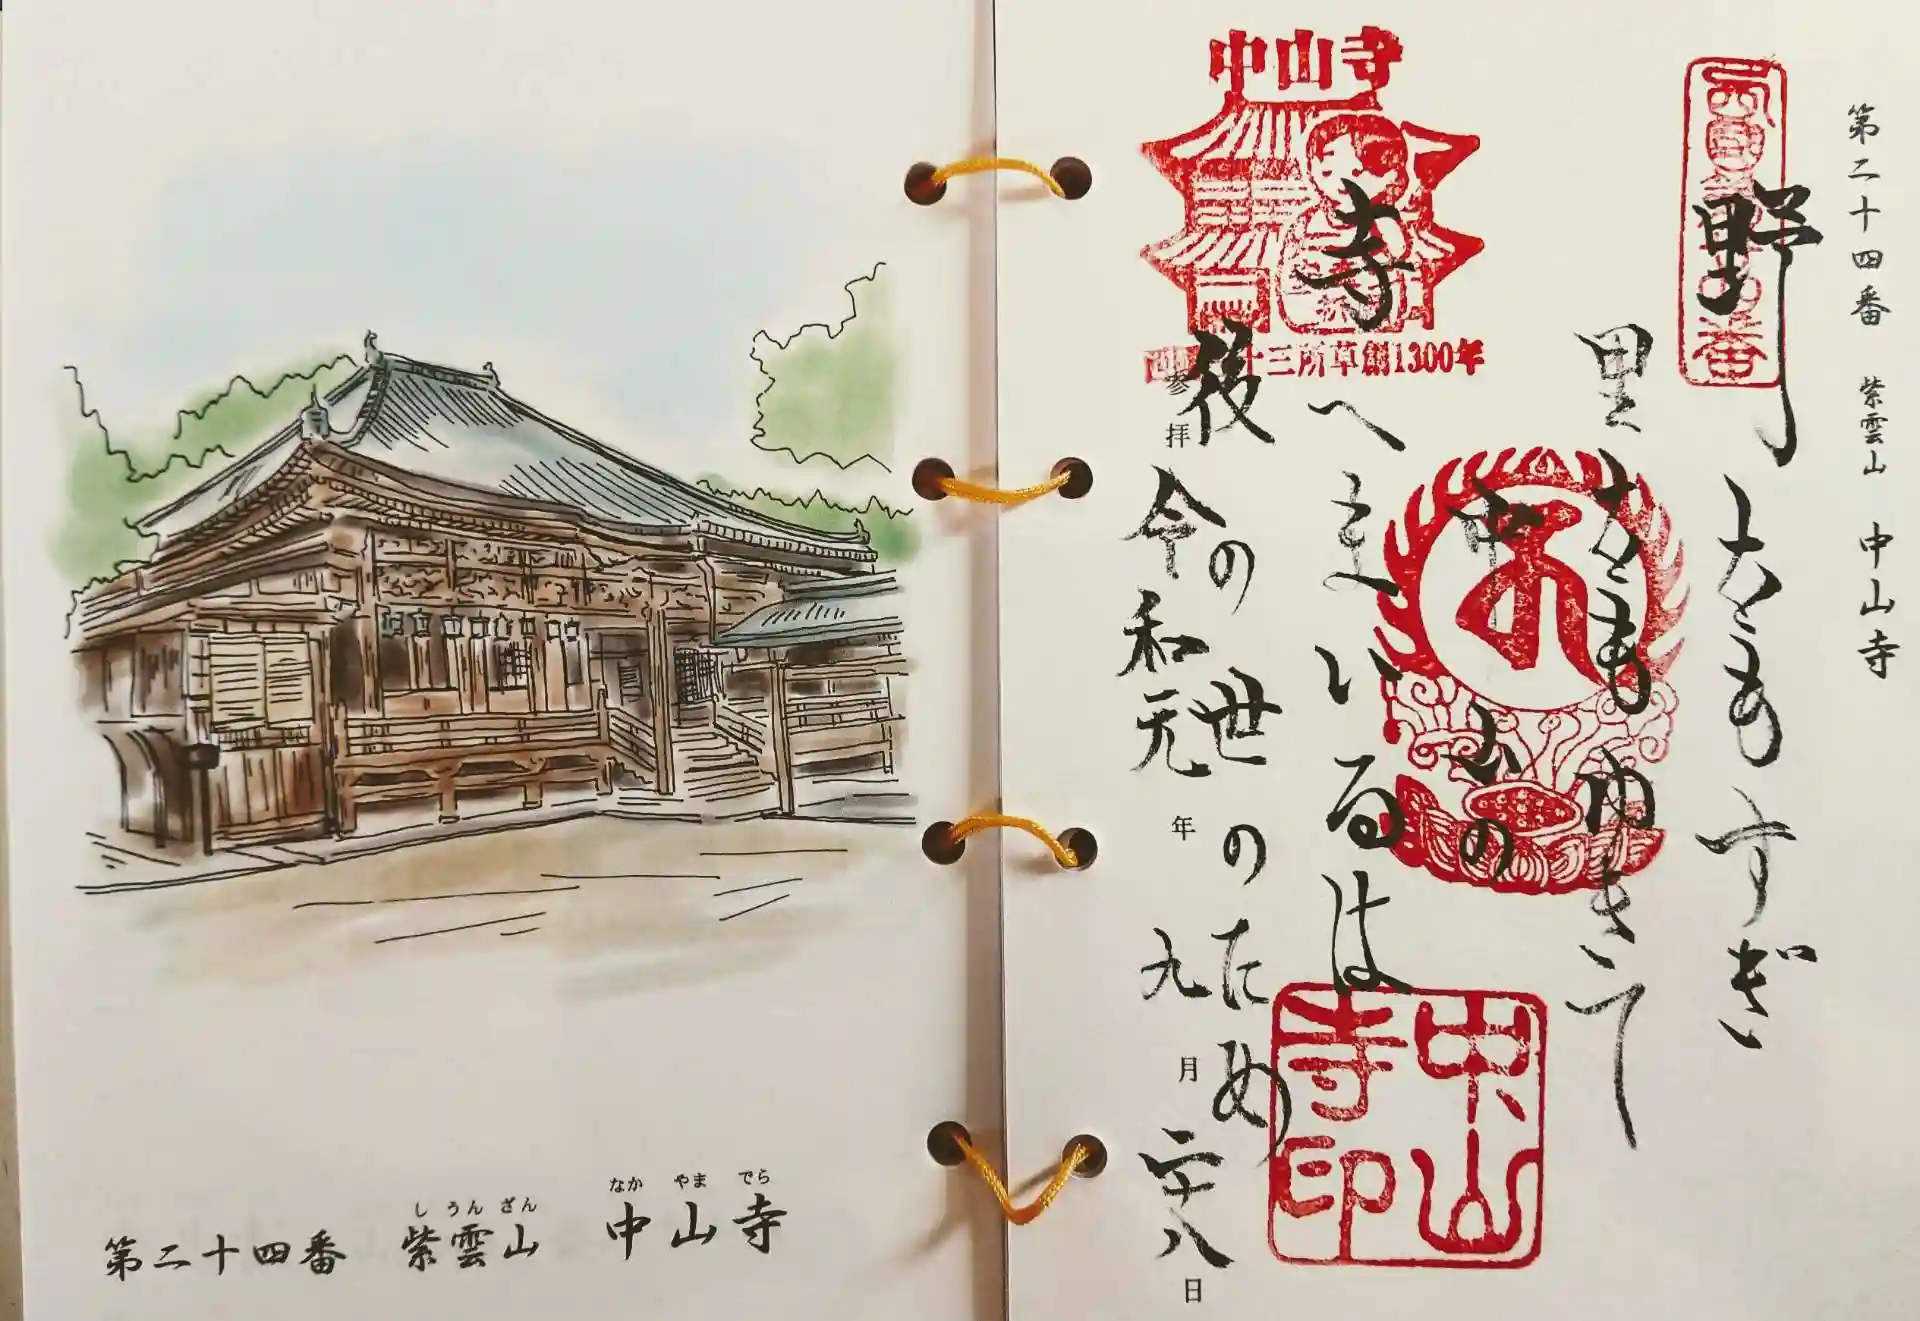 しうんざん なかやまでら
第二十四番 紫雲山 中山寺
第二十四番 紫雲山 中山寺
野をもすぎ
里をもゆきて
中山の
寺へまいるは
後の世のため
参拝 令和元年九月二十八日
中山寺
十三所草創1300年
中山寺印